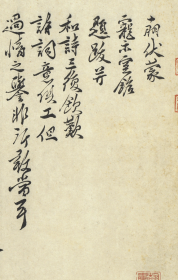 蒙
寵示寶繪
題跋并
和詩三復欽歎
詩詞意俱工但
過情之譽非所敢當耳